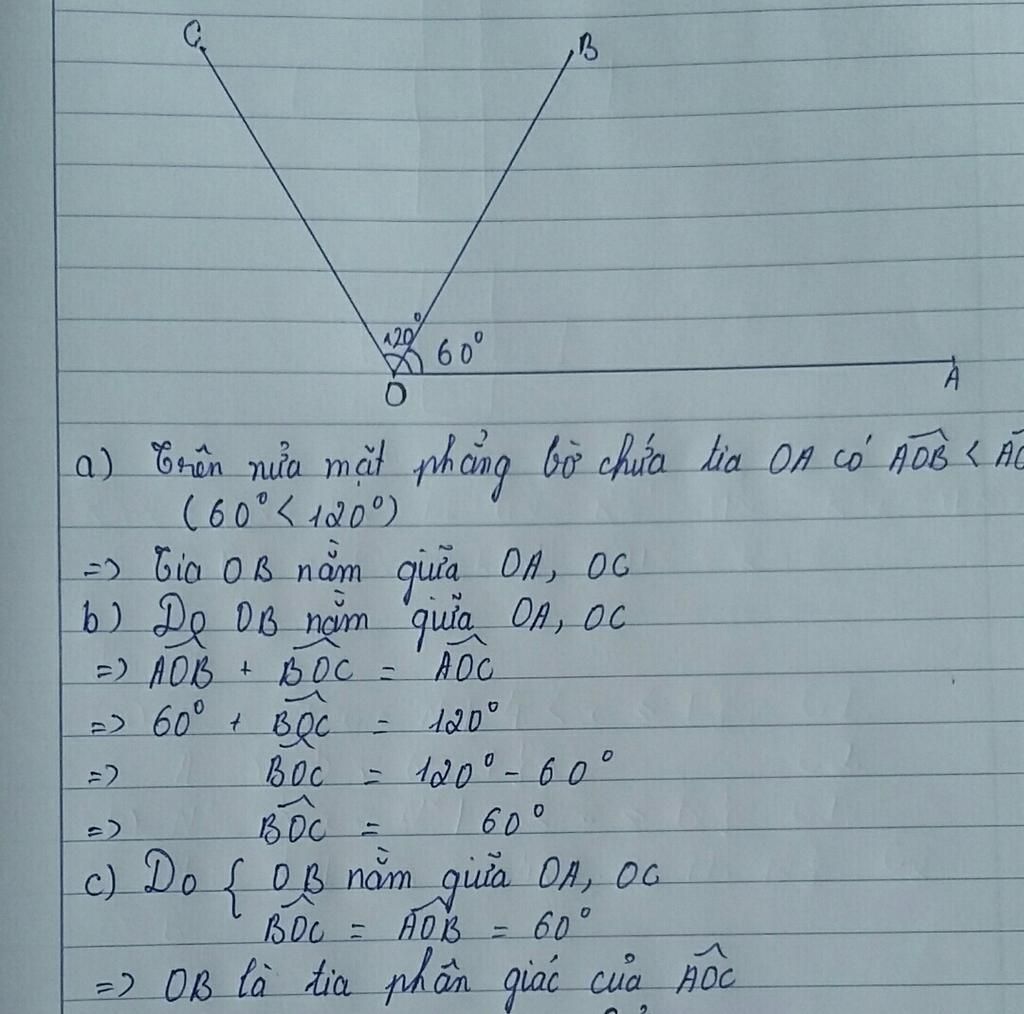 C B
120° 60°
O A
a) Trên nửa mặt phẳng bờ chứa tia OA có AOB <
(60° < 120°)
=> Tia OB nằm giữa OA, OC
b) Do OB nằm giữa OA, OC
=> AOB + BOC = AOC
=> 60° + BOC = 120°
=> BOC = 120° - 60°
=> BOC = 60°
c) Do { OB nằm giữa OA, OC
BOC = AOB = 60°
=> OB là tia phân giác của AOC